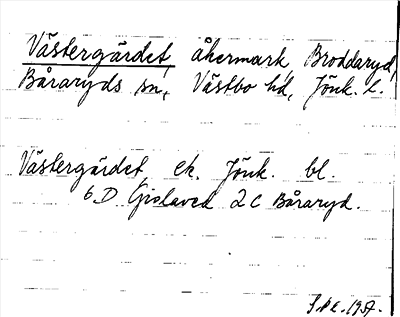 Västergärdet, åkermark, Broddaryd,
Båraryds sn, Västbo hd, Jönk. l.
Västergärdet, ek. Jönk. bl.
6 D Gislaved 2 c Båraryd.